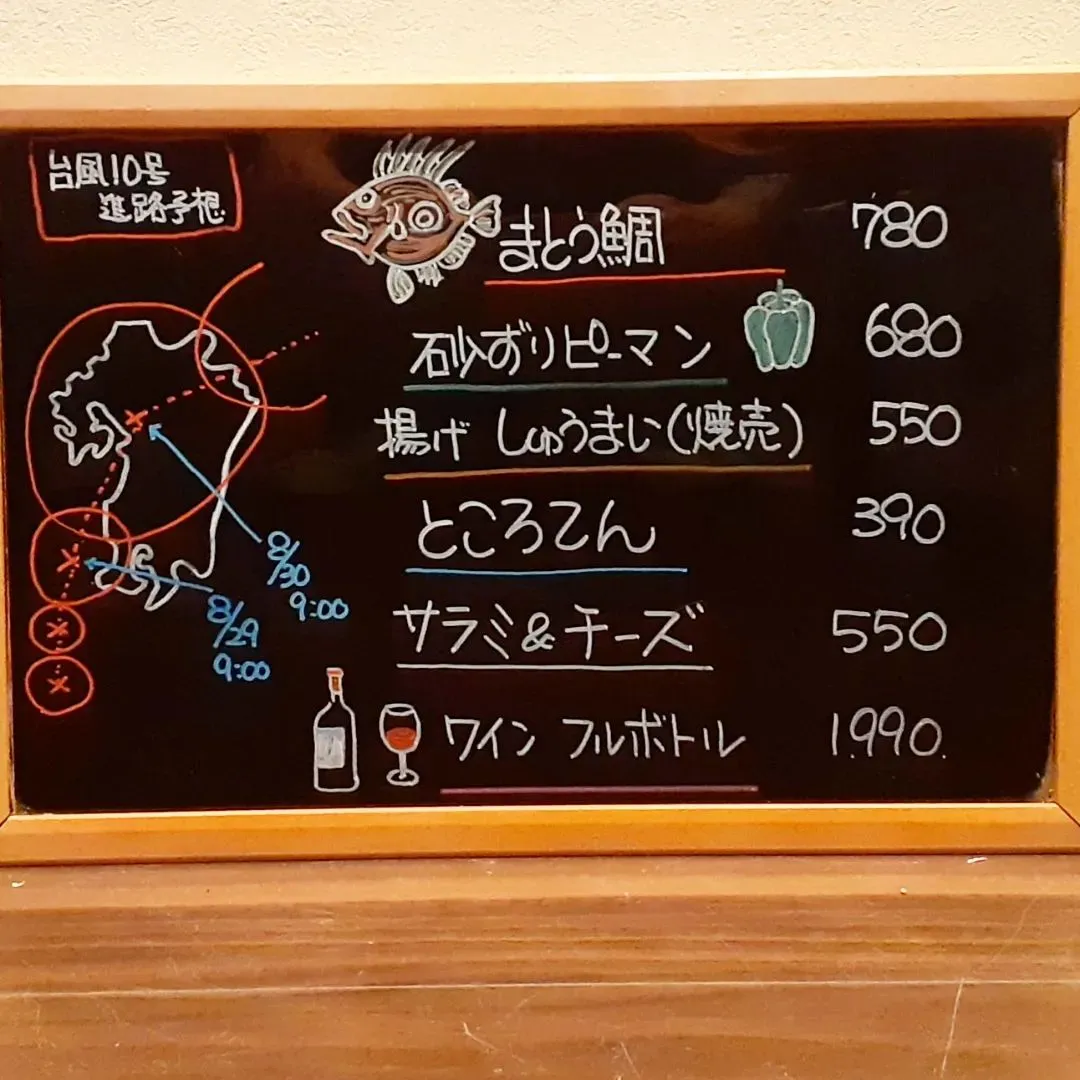 台風10号
進路予想
まとう鯛 780
砂ずりピーマン 680
揚げ しゅうまい(焼売) 550
ところてん 390
サラミ&チーズ 550
ワイン フルボトル 1.990.
8/30
9:00
8/29
9:00